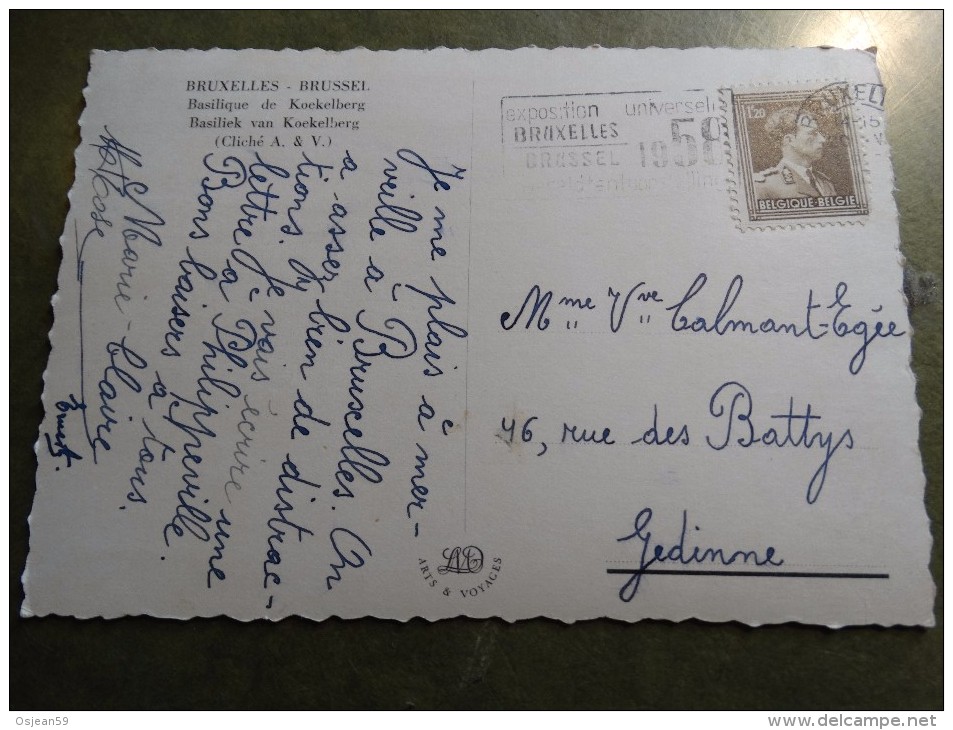 BRUXELLES - BRUSSEL
Basilique de Koekelberg
Basiliek van Koekelberg
(Cliché A. & V.)
Je me plais à mer-
veille à Bruxelles. On
a assez bien de distrac-
tions. Je vais écrire une
lettre à Philippeville.
Bons baisers à tous.
Marie-Claire
Rose
Ernest.
exposition universell
BRUXELLES
BRUSSEL 1958
BRUXEL
1.20
BELGIQUE·BELGIE
Mme Vve Calmant-Egée
46, rue des Battys
Gedinne
ARTS & VOYAGES
Osjean59
delcampe.net